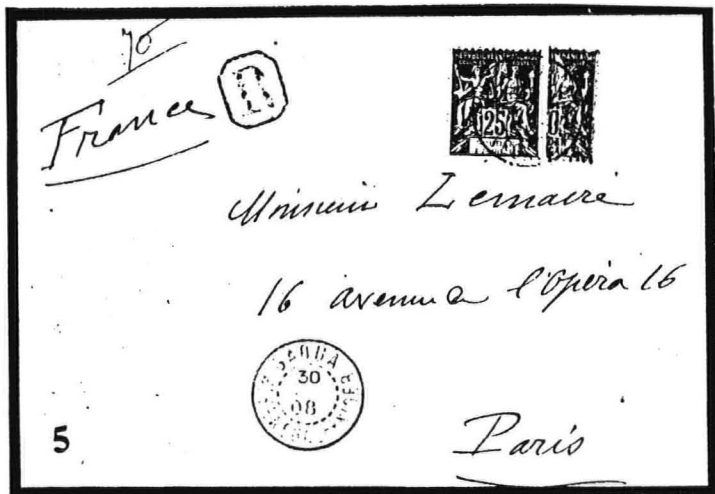 70
France
R
25
Monsieur Lemaire
16 avenue de l'Opéra 16
30
08
5
Paris